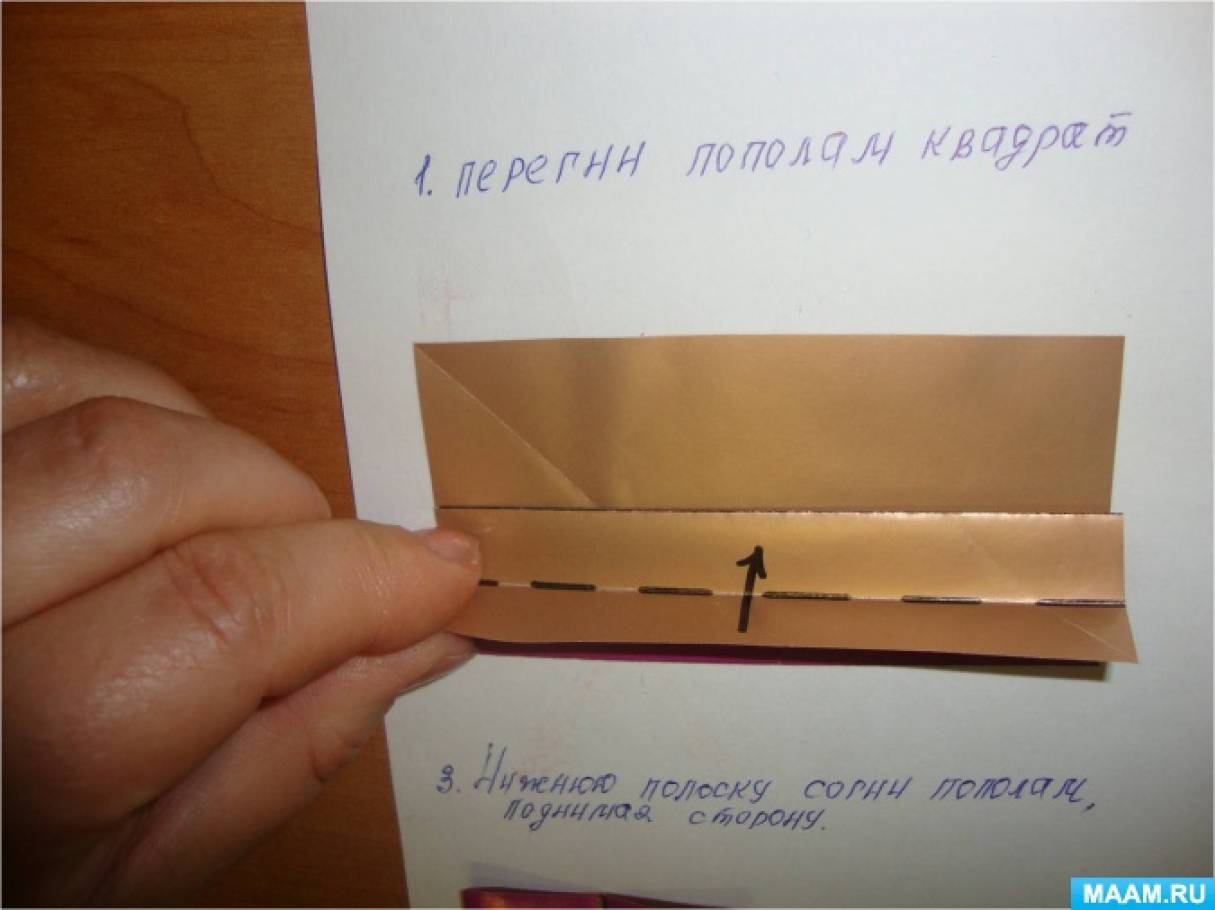 1. перегни пополам квадрат
3. Нижнюю полоску согни пополам,
поднимая сторону.
MAAM.RU